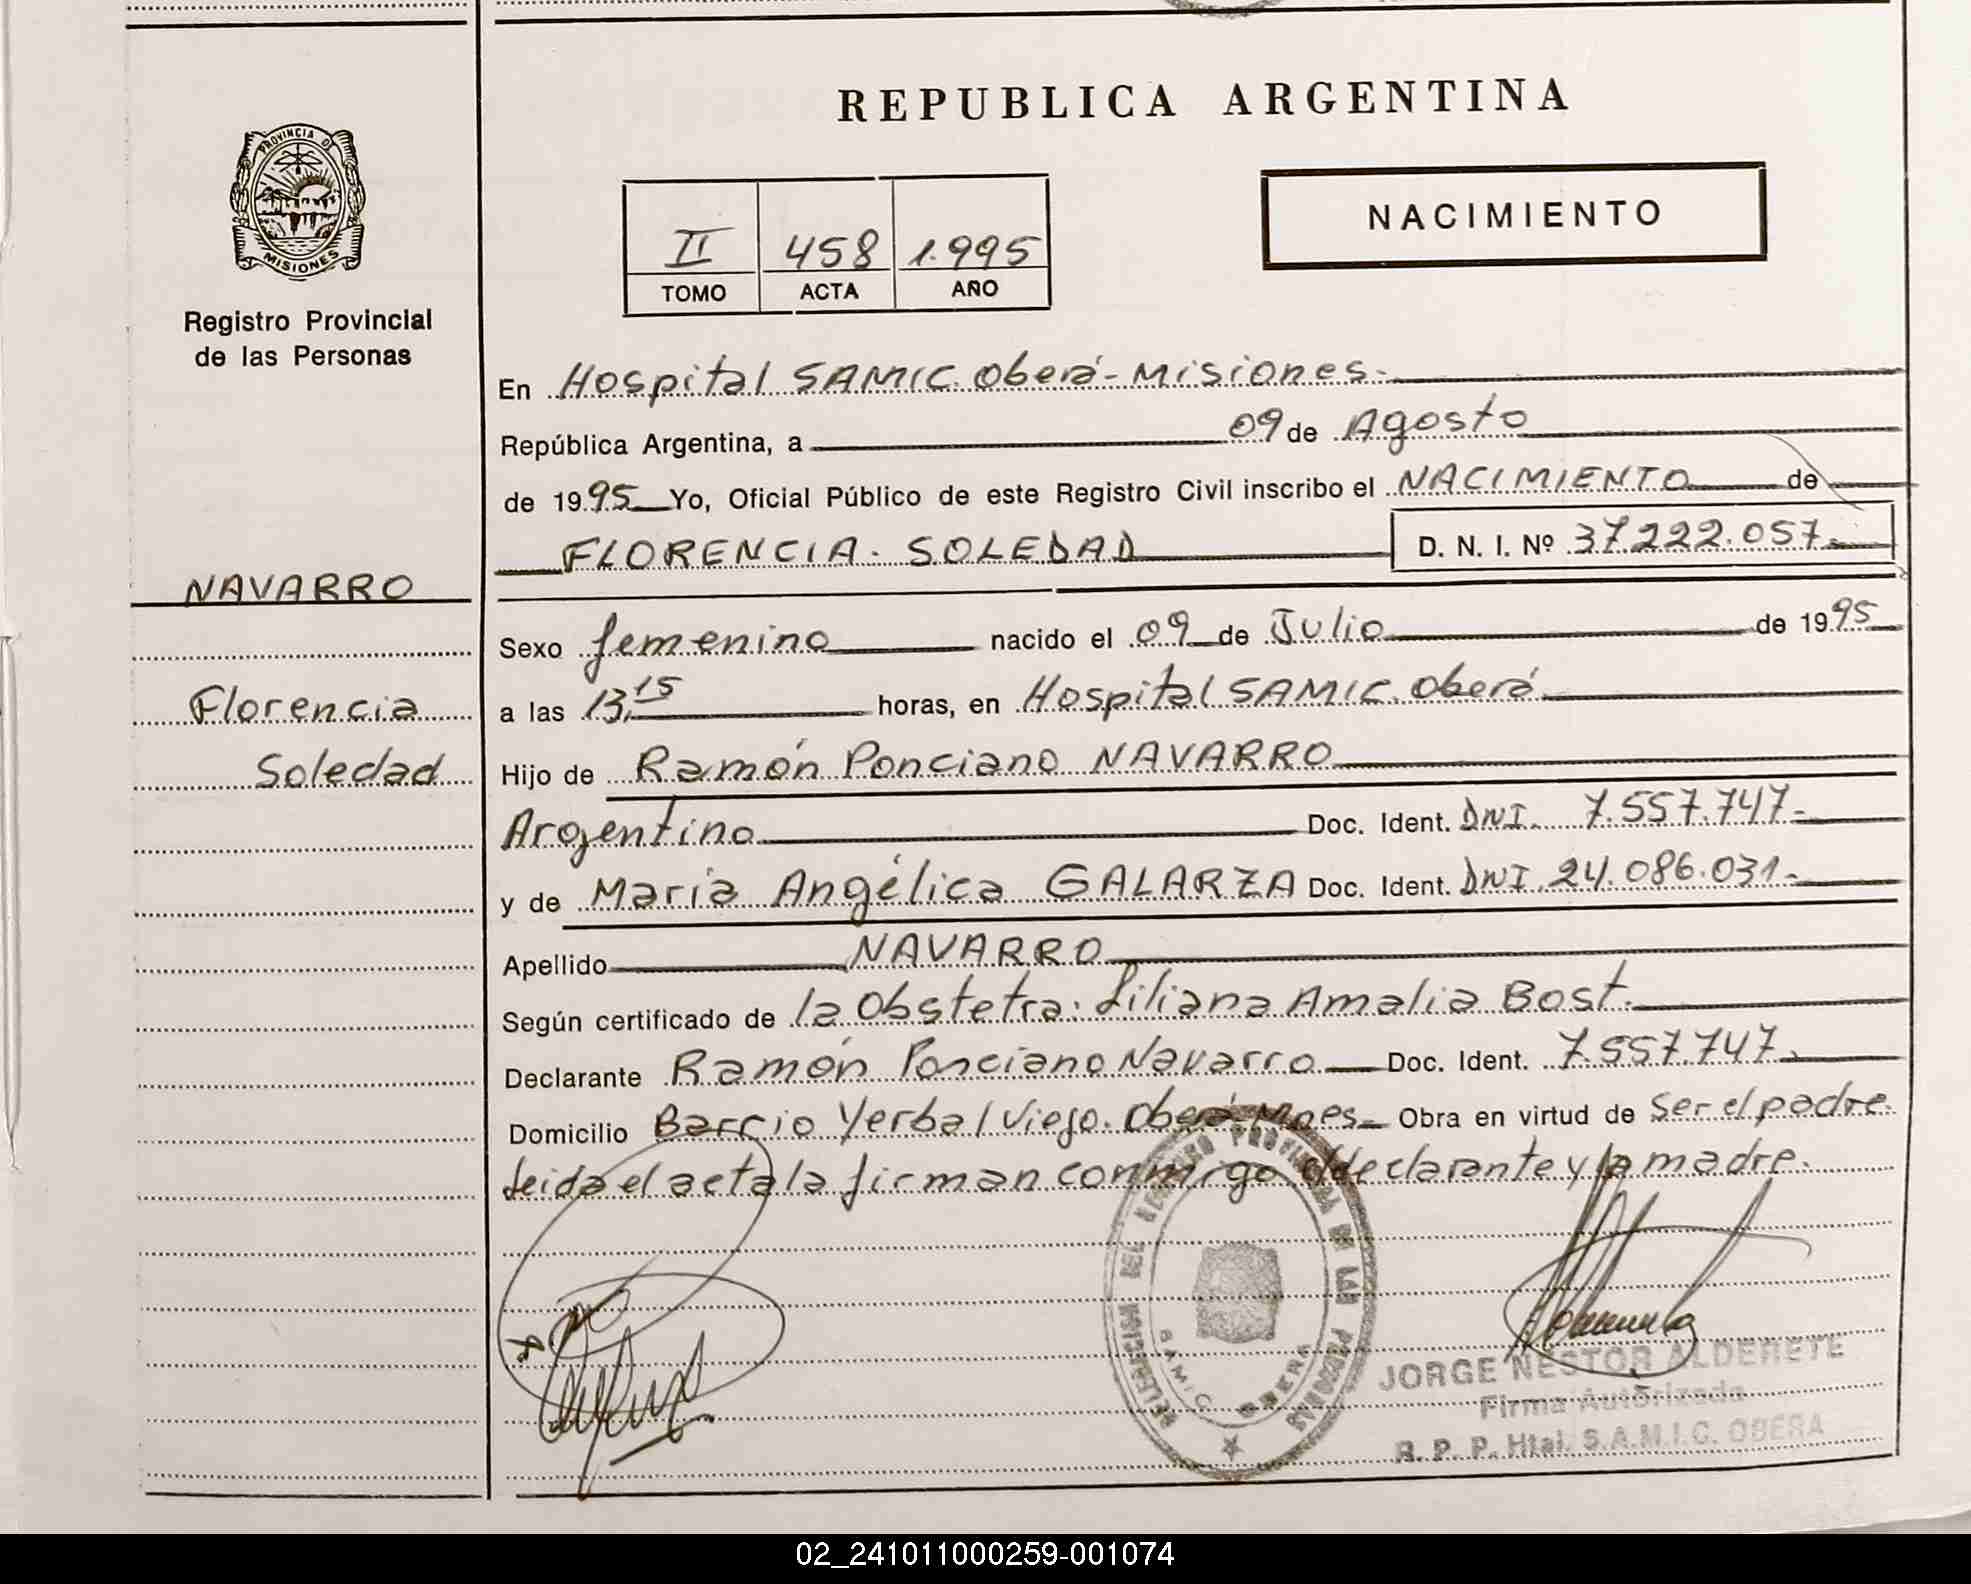 REPUBLICA ARGENTINA
PROVINCIA DE
MISIONES
Registro Provincial
de las Personas
II 458 1.995
TOMO ACTA AÑO
NACIMIENTO
En Hospital SAMIC. Oberá - Misiones.-
República Argentina, a 09 de Agosto
de 1995 Yo, Oficial Público de este Registro Civil inscribo el NACIMIENTO de
FLORENCIA - SOLEDAD D. N. I. Nº 37.222.057.-
NAVARRO
Florencia
Soledad
Sexo femenino nacido el 09 de Julio de 1995
a las 13,15 horas, en Hospital SAMIC. Oberá
Hijo de Ramón Ponciano NAVARRO
Argentino Doc. Ident. DNI. 7.557.747.-
y de María Angélica GALARZA Doc. Ident. DNI. 24.086.031.-
Apellido NAVARRO
Según certificado de la Obstetra: Liliana Amalia Bost.
Declarante Ramón Ponciano Navarro Doc. Ident. 7.557.747.
Domicilio Barrio Yerbal Viejo. Oberá-Mnes. Obra en virtud de Ser el padre.
Leida el acta la firman conmigo el declarante y la madre.
DELEGACION DEL REGISTRO PROVINCIAL DE LAS PERSONAS
SAMIC OBERA
JORGE NESTOR ALDERETE
Firma Autorizada
R. P. P. Htal. S.A.M.I.C. OBERA
02_241011000259-001074